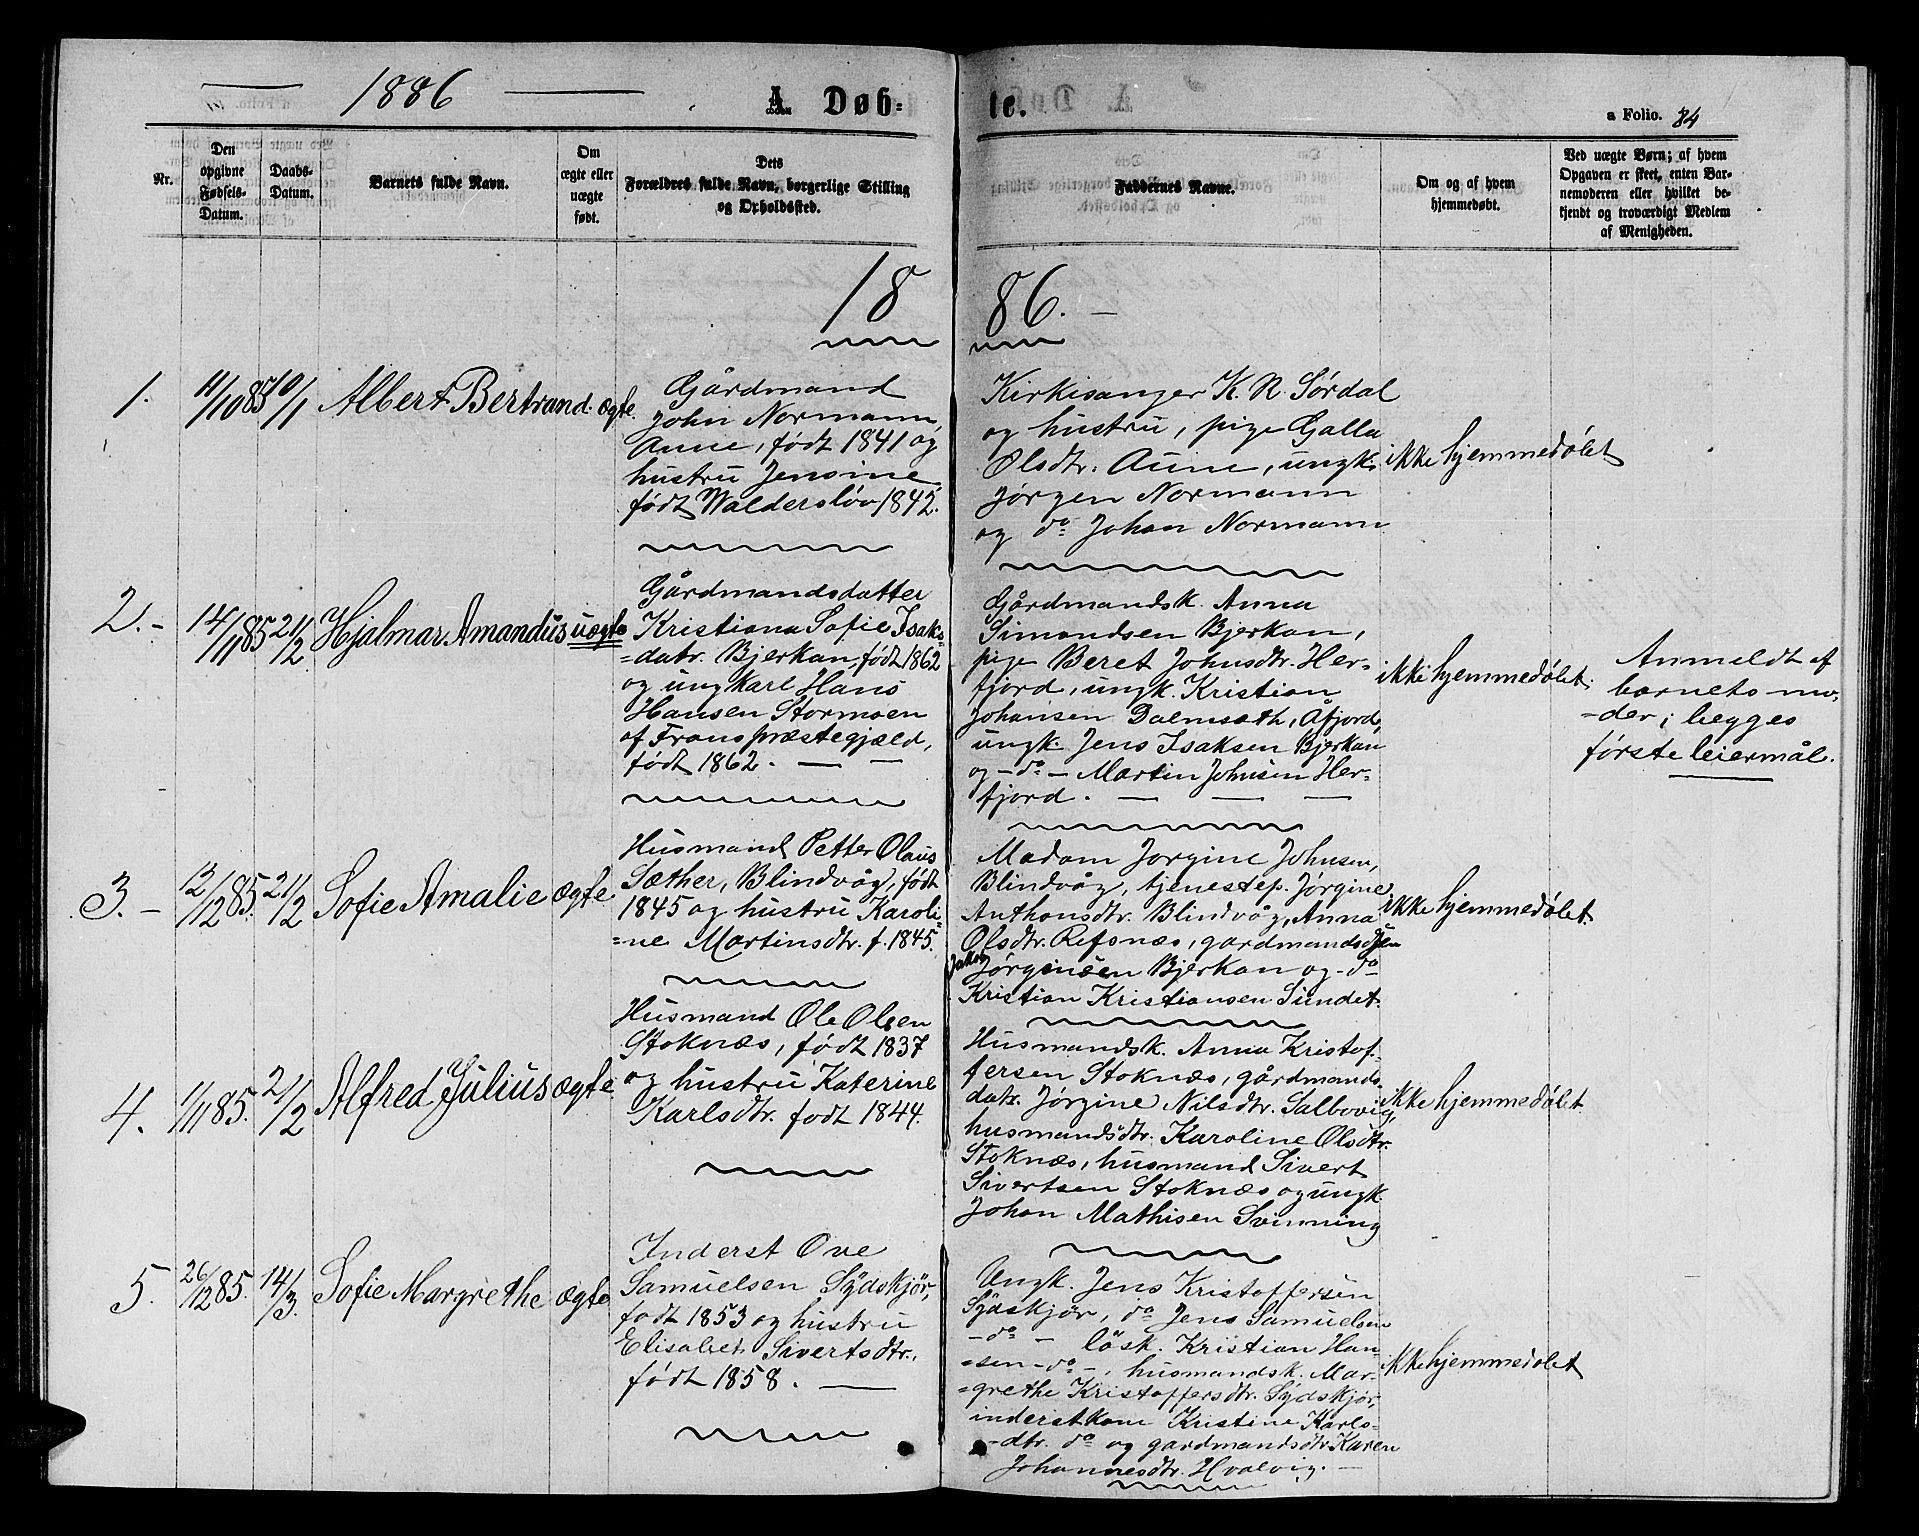 1886
A Døb-
te.
a Folio. 84
Nr.
Den
opgivne
Fødsels-
Datum.
Daabs-
Datum.
Barnets fulde Navn.
Om
ægte eller
uægte
født.
Dets
Forældres fulde Navn, borgerlige Stilling
og Opholdssted.
Faddernes Navne.
Om og af hvem
hjemmedøbt.
Ved uægte Børn; af hvem
Opgaven er skeet, enten Bar-
nemoderen eller hvilket be-
kjendt og troværdigt Medlem
af Menigheden.
18 86.
1. 11/10 85 10/1 Albert Bertrand. ægte.
Gårdmand
John Normann,
Aune, født 1841 og
hustru Jensine
født Walderslöv 1842.
Kirkisanger K. N. Sørdal
og hustru, pige Galla
Olsdtr. Aune, ungk.
Jørgen Normann
og do Johan Normann
ikke hjemmedølet
2. - 14/11 85 21/2 Hjalmar Amandus uægte
Gårdmandsdatter
Kristiana Sofie Isaks-
=datr. Bjerkan, født 1862
og ungkarl Hans
Hansen Stormoen
af Frans præstegjæld,
født 1862. — —
Gårdmandsk. Anna
Simondsen Bjerkan,
pige Beret Johnsdtr. Her-
fjord, ungk. Kristian
Johansen Dalmsæth, Åfjord,
ungk. Jens Isaksen Bjerkan
og - do - Martin Johnsen Her-
fjord. — — —
ikke hjemmedølet.
Anmeldt af
barnets mo-
=der; begges
første leiermål.
3. - 12/12 85. 21/2 Sofie Amalie ægte
Husmand Petter Olaus
Sæther, Blindvåg, født
1845 og hustru Karoli=
=ne Martinsdtr. f. 1845.
Madam Jørgine Johnsen,
Blindvåg, tjenestep. Jørgine
Anthonsdtr. Blindvåg, Anna
Olsdtr. Refsnæs, gardmands
Jakob Jørginsen Bjerkan og - do
Kristian Kristiansen Sundet.
ikke hjemmedølet.
4. 1/11 85. 21/2 Alfred Julius ægte
Husmand Ole Olsen
Stoknæs, født 1837
og hustru Katerine
Karlsdtr. født 1844.
Husmandsk. Anna Kristof-
fersen Stoknæs, gårdmands-
datr. Jørgine Nilsdtr. Salbovig,
husmandsdtr. Karoline Olsdtr.
Stoknæs, husmand Sivert
Sivertsen Stoknæs og ungk.
Johan Mathisen Svinning
ikke hjemmedølet
5. 26/12 85. 14/3. Sofie Margrethe ægte
Inderst Ove
Samuelsen Sydskjør,
født 1853 og hustru
Elisabet Sivertsdtr.,
født 1858. —
Ungk. Jens Kristoffersen
Sydskjør, do Jens Samuelsen
- do - lösk. Kristian Han-
=sen - do -, husmandsk. Mar-
=grethe Kristoffersdtr. Sydskjør,
inderstkone Kristine Karls-
-dtr. do og gardmandsdtr. Karen
Johannesdtr. Hvalvig. —
ikke hjemmedølet